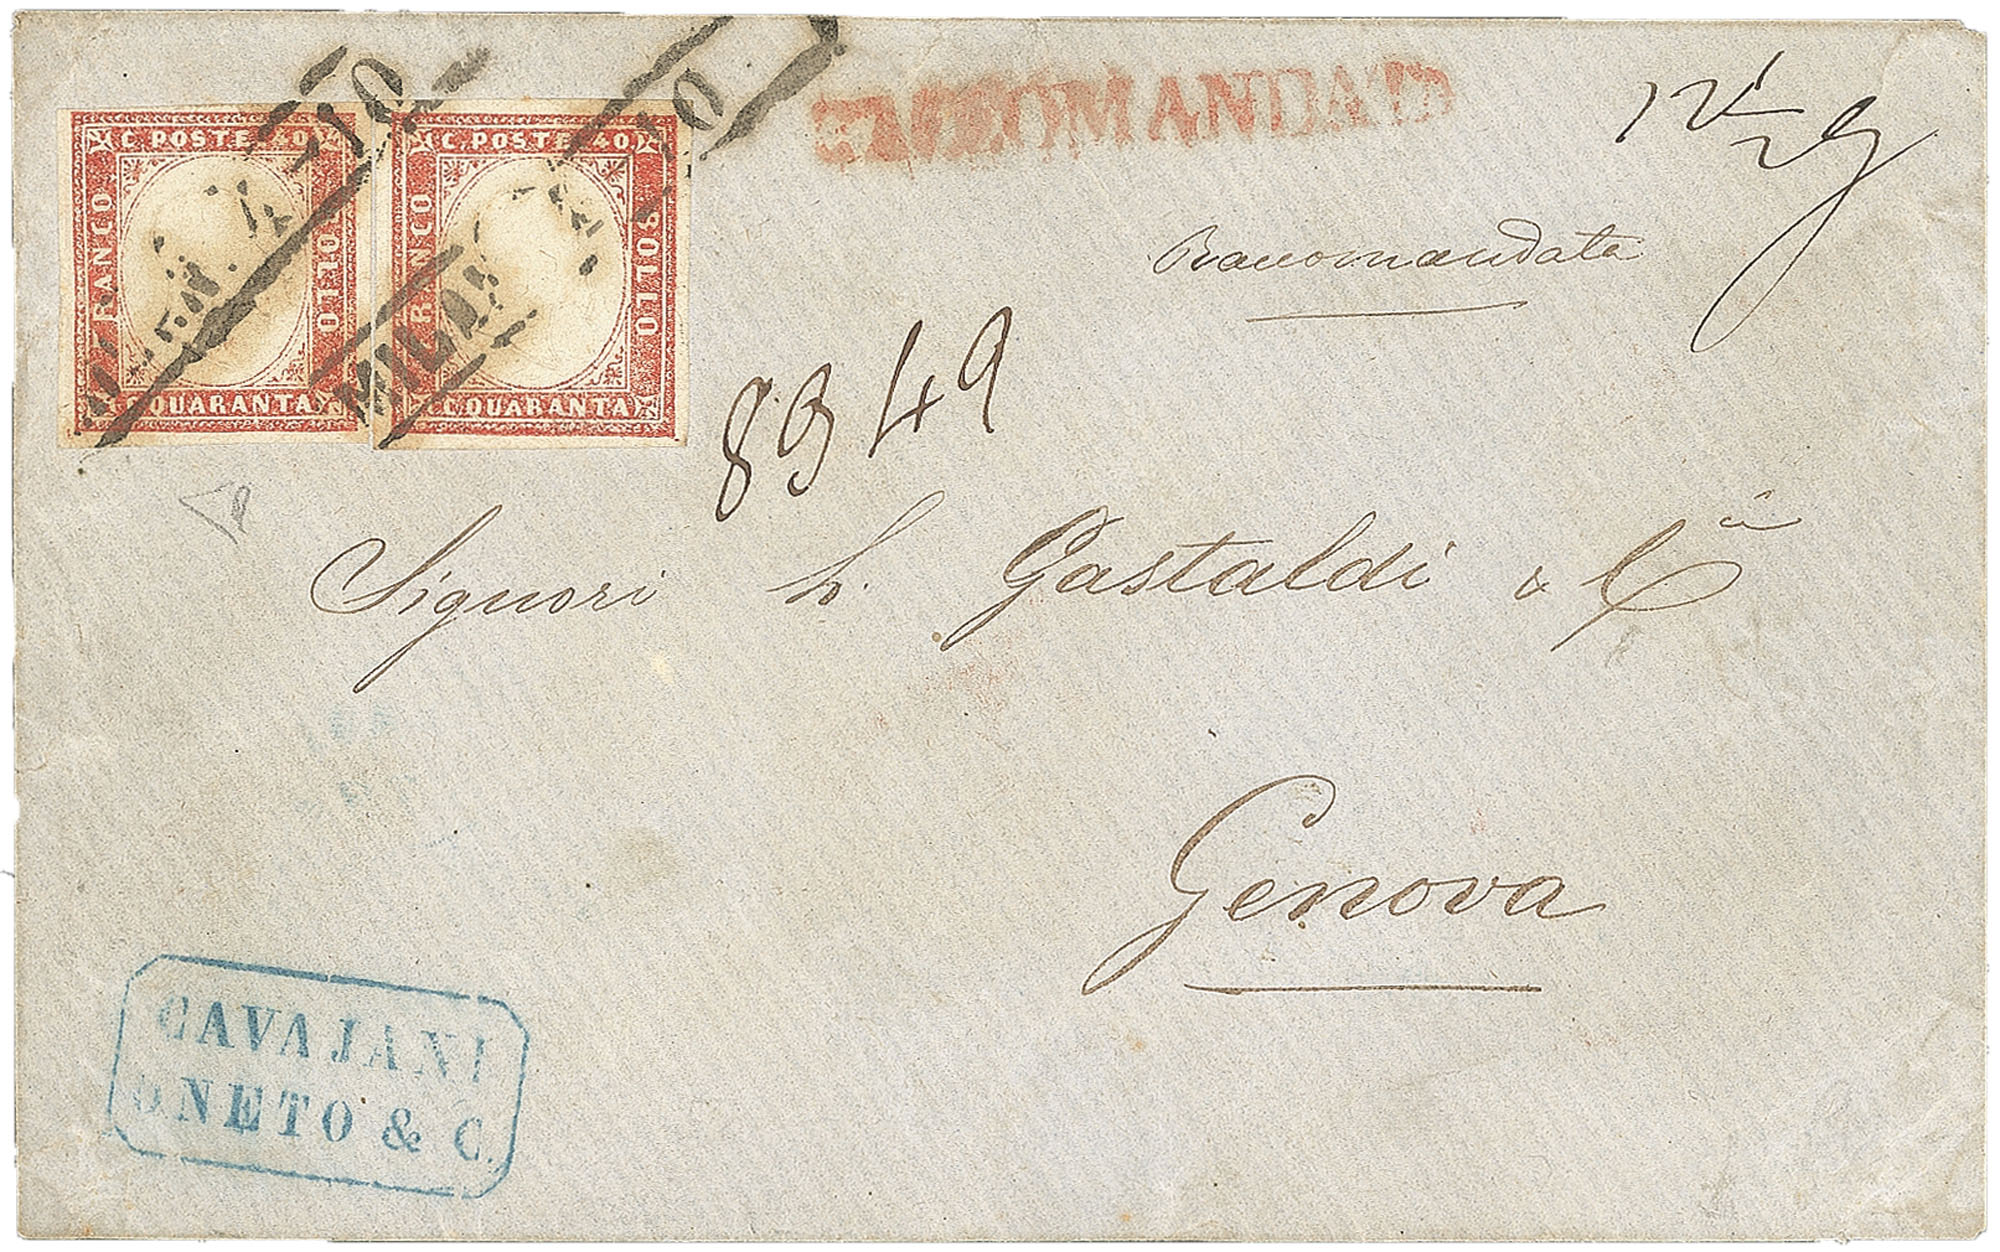 C. POSTE 40
FRANCO
BOLLO
C. QUARANTA
C. POSTE 40
FRANCO
BOLLO
C. QUARANTA
MILANO
RACCOMANDATO
12 1/2 g
Raccomandata
8349
Signori L. Gastaldi & C.a
Genova
CAVAJANI
ONETO & C.